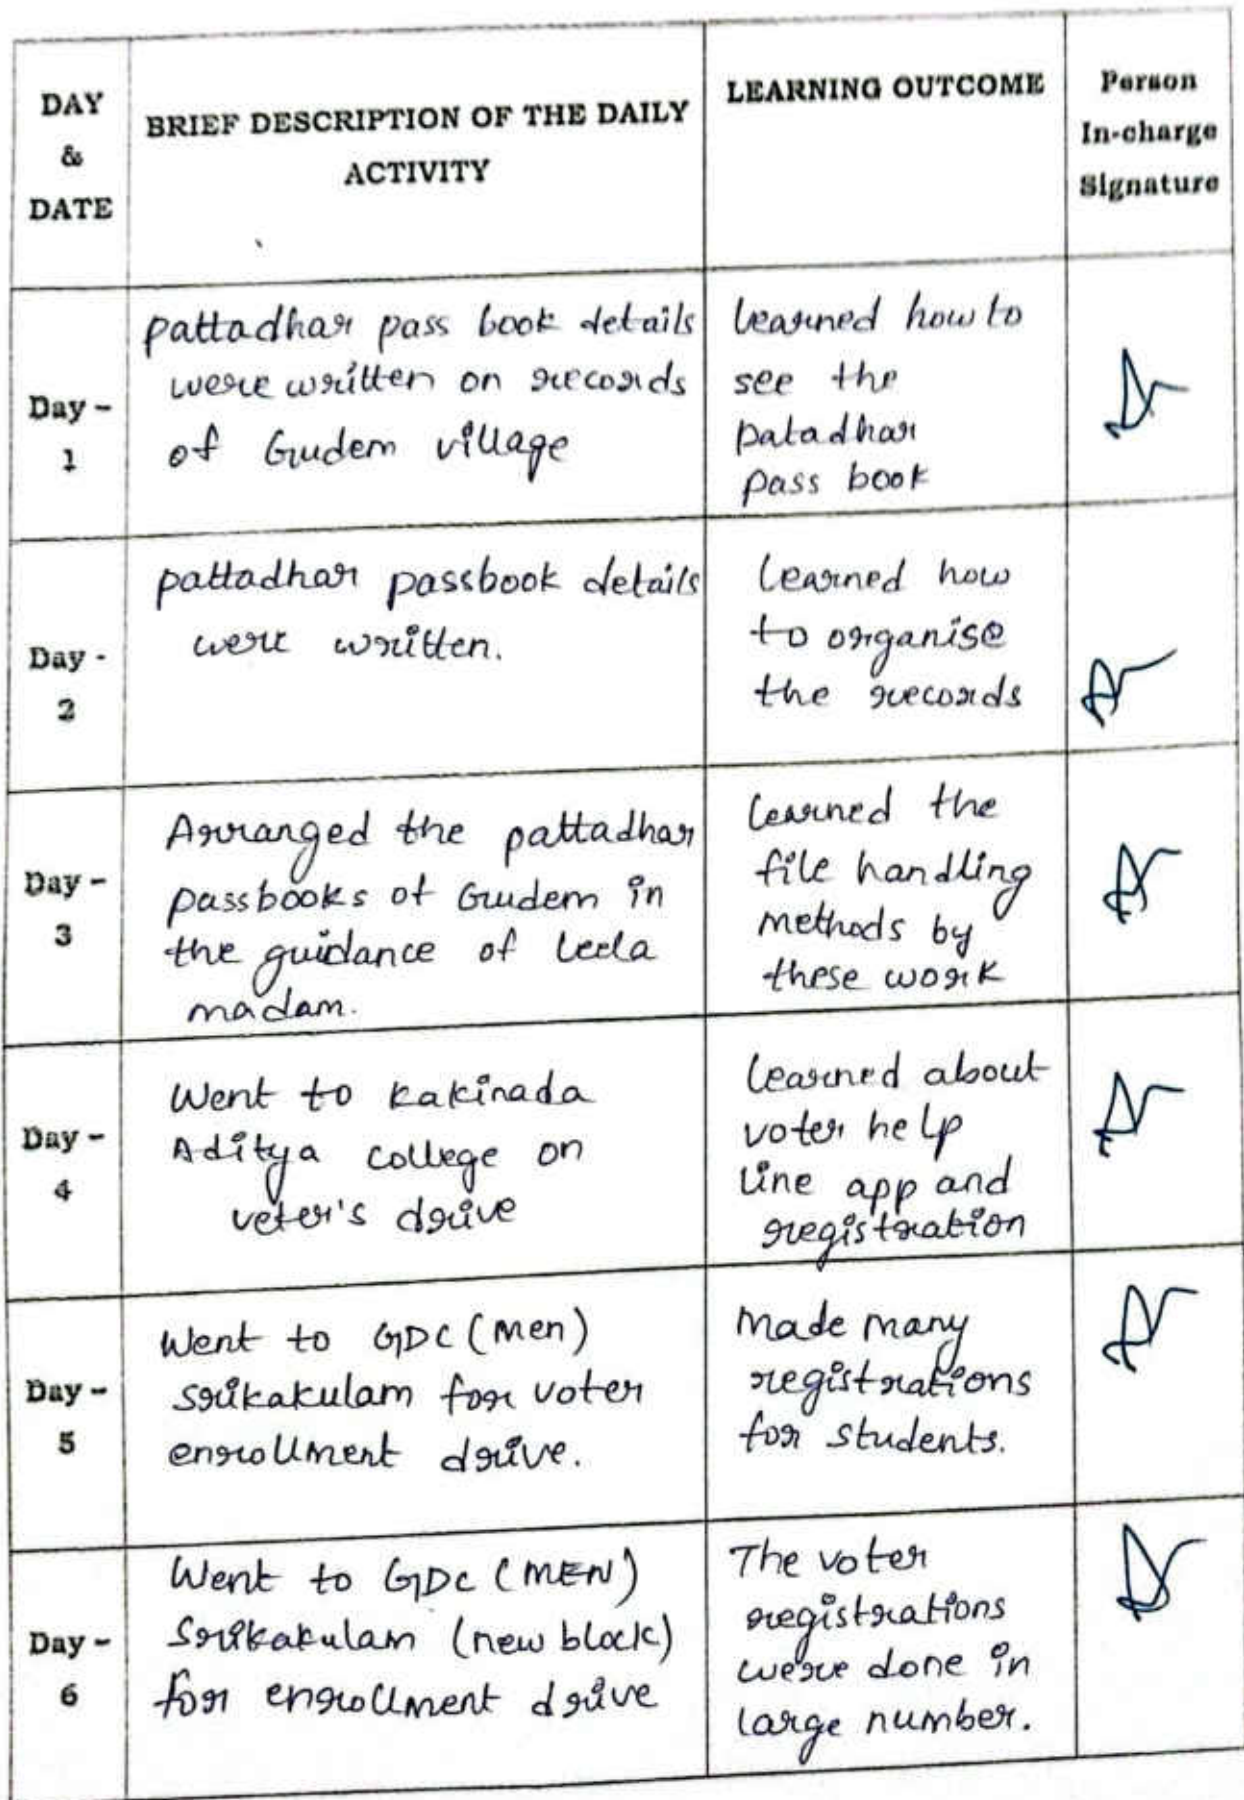 DAY
&
DATE
BRIEF DESCRIPTION OF THE DAILY
ACTIVITY
LEARNING OUTCOME
Person
In-charge
Signature
Day -
1
pattadhar pass book details
were written on records
of Gudem village
learned how to
see the
patadhar
pass book
Day -
2
pattadhar passbook details
were written.
learned how
to organise
the records
Day -
3
Arranged the pattadhar
passbooks of Gudem in
the guidance of leela
madam.
learned the
file handling
methods by
these work
Day -
4
Went to kakinada
Aditya college on
veter's drive
learned about
voter help
line app and
registration
Day -
5
Went to GDC (men)
srikakulam for voter
enrollment drive.
made many
registrations
for students.
Day -
6
Went to GDC (MEN)
Srikakulam (new block)
for enrollment drive
The voter
registrations
were done in
large number.